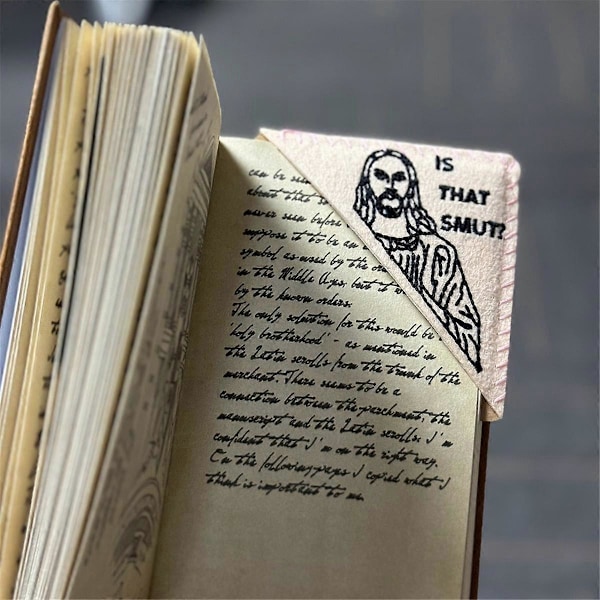 can be seen
about that
never seen before
suppose it to be an
symbol as used by the
in the Middle Ages, but it
by the known orders.
The only solution for this would be
'holy brotherhood' - as mentioned in
the Latin scrolls from the trunk of the
merchant. There seems to be a
connection between the parchment, the
manuscript and the Latin scrolls. I'm
confident that I'm on the right way.
On the following pages I copied what I
think is important to me.
IS
THAT
SMUT?